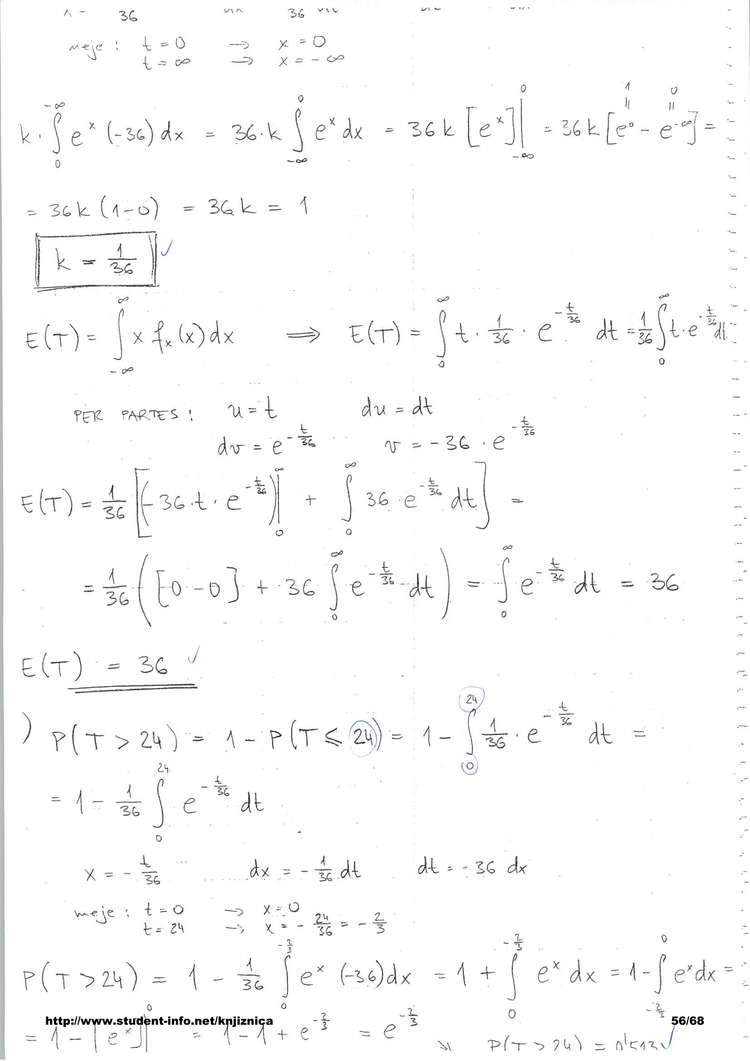 36 36
meje : t = 0 → x = 0
t = ∞ → x = - ∞
k · ∫₀^{-∞} e^x (-36) dx = 36 · k ∫_{-∞}^0 e^x dx = 36 k [e^x] |_{-∞}^0 = 36 k [e^0 - e^{-∞}] =
1 0
= 36 k (1-0) = 36 k = 1
k = 1/36 ✓
E(T) = ∫_{-∞}^∞ x f_x(x) dx ⟹ E(T) = ∫₀^∞ t · 1/36 · e^{-t/36} dt = 1/36 ∫₀^∞ t · e^{-t/36} dt
PER PARTES : u = t du = dt
dv = e^{-t/36} v = -36 · e^{-t/36}
E(T) = 1/36 [(-36 · t · e^{-t/36}) |₀^∞ + ∫₀^∞ 36 · e^{-t/36} dt] =
= 1/36 ([0 - 0] + 36 ∫₀^∞ e^{-t/36} dt) = ∫₀^∞ e^{-t/36} dt = 36
E(T) = 36 ✓
) P(T > 24) = 1 - P(T ≤ 24) = 1 - ∫₀^{24} 1/36 · e^{-t/36} dt =
= 1 - 1/36 ∫₀^{24} e^{-t/36} dt
x = - t/36 dx = - 1/36 dt dt = - 36 dx
meje : t = 0 → x = 0
t = 24 → x = - 24/36 = - 2/3
P(T > 24) = 1 - 1/36 ∫₀^{-2/3} e^x (-36) dx = 1 + ∫₀^{-2/3} e^x dx = 1 - ∫_{-2/3}^0 e^x dx =
= 1 - [e^x] |^0 = 1 - 1 + e^{-2/3} = e^{-2/3}
P(T > 24) = 0'513 ✓
http://www.student-info.net/knjiznica 56/68